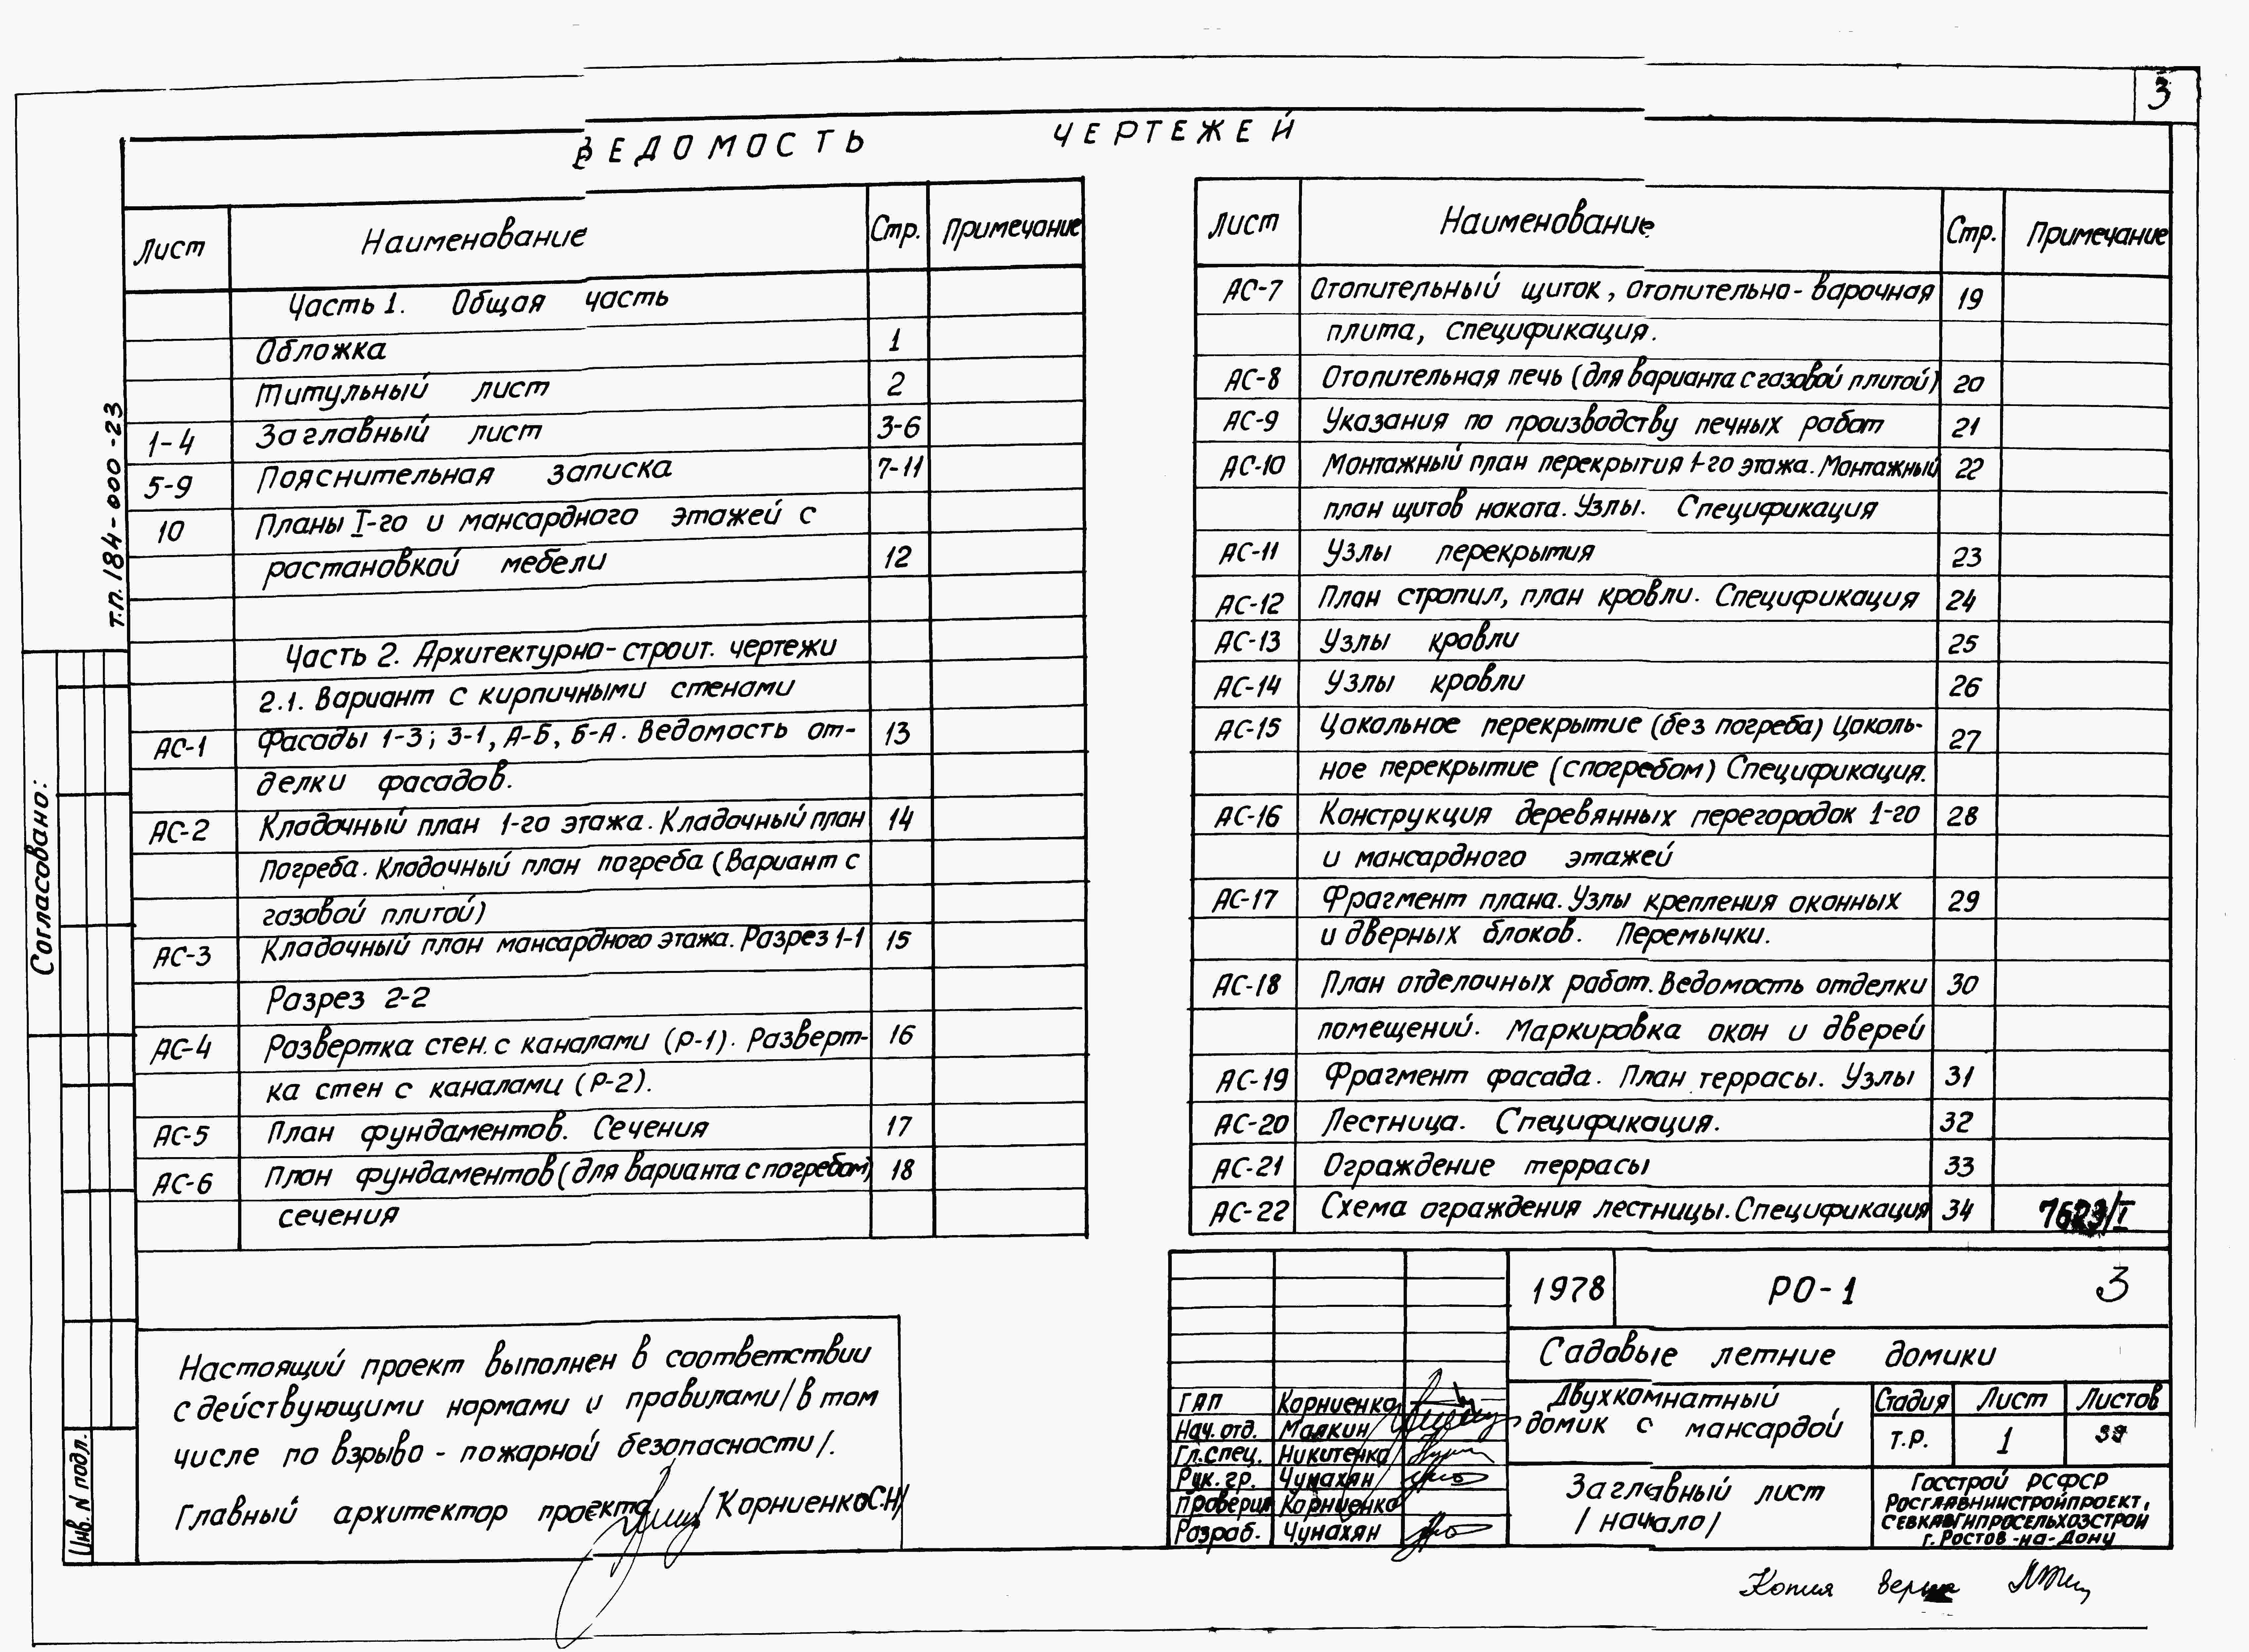 3
ВЕДОМОСТЬ ЧЕРТЕЖЕЙ
т.п. 184-000-23
Согласовано:
Инв. N подл.
Лист Наименование Стр. Примечание
Часть 1. Общая часть
Обложка 1
Титульный лист 2
1-4 Заглавный лист 3-6
5-9 Пояснительная записка 7-11
10 Планы I-го и мансардного этажей с
растановкой мебели 12
Часть 2. Архитектурно-строит. чертежи
2.1. Вариант с кирпичными стенами
АС-1 Фасады 1-3; 3-1, А-Б, Б-А. Ведомость от- 13
делки фасадов.
АС-2 Кладочный план 1-го этажа. Кладочный план 14
погреба. Кладочный план погреба (Вариант с
газовой плитой)
АС-3 Кладочный план мансардного этажа. Разрез 1-1 15
Разрез 2-2
АС-4 Развертка стен с каналами (Р-1). Разверт- 16
ка стен с каналами (Р-2).
АС-5 План фундаментов. Сечения 17
АС-6 План фундаментов (для варианта с погребом) 18
сечения
Лист Наименование Стр. Примечание
АС-7 Отопительный щиток, отопительно-варочная 19
плита, спецификация.
АС-8 Отопительная печь (для варианта с газовой плитой) 20
АС-9 Указания по производству печных работ 21
АС-10 Монтажный план перекрытия 1-го этажа. Монтажный 22
план щитов наката. Узлы. Спецификация
АС-11 Узлы перекрытия 23
АС-12 План стропил, план кровли. Спецификация 24
АС-13 Узлы кровли 25
АС-14 Узлы кровли 26
АС-15 Цокольное перекрытие (без погреба) Цоколь- 27
ное перекрытие (с погребом) Спецификация.
АС-16 Конструкция деревянных перегородок 1-го 28
и мансардного этажей
АС-17 Фрагмент плана. Узлы крепления оконных 29
и дверных блоков. Перемычки.
АС-18 План отделочных работ. Ведомость отделки 30
помещений. Маркировка окон и дверей
АС-19 Фрагмент фасада. План террасы. Узлы 31
АС-20 Лестница. Спецификация. 32
АС-21 Ограждение террасы 33
АС-22 Схема ограждения лестницы. Спецификация 34
7623/I
Настоящий проект выполнен в соответствии
с действующими нормами и правилами/в том
числе по взрыво-пожарной безопасности/.
Главный архитектор проекта /Корниенко С.Н/
1978 РО-1 3
Садовые летние домики
ГАП Корниенко
Нач. отд. Маякин
Гл. спец. Никитенко
Рук. гр. Чунахян
Проверил Корниенко
Разраб. Чунахян
Двухкомнатный
домик с мансардой
Стадия Лист Листов
т.р. 1 39
Заглавный лист
/начало/
Госстрой РСФСР
РОСГЛАВНИИСТРОЙПРОЕКТ,
СЕВКАВГИПРОСЕЛЬХОЗСТРОЙ
г. Ростов-на-Дону
Копия верна